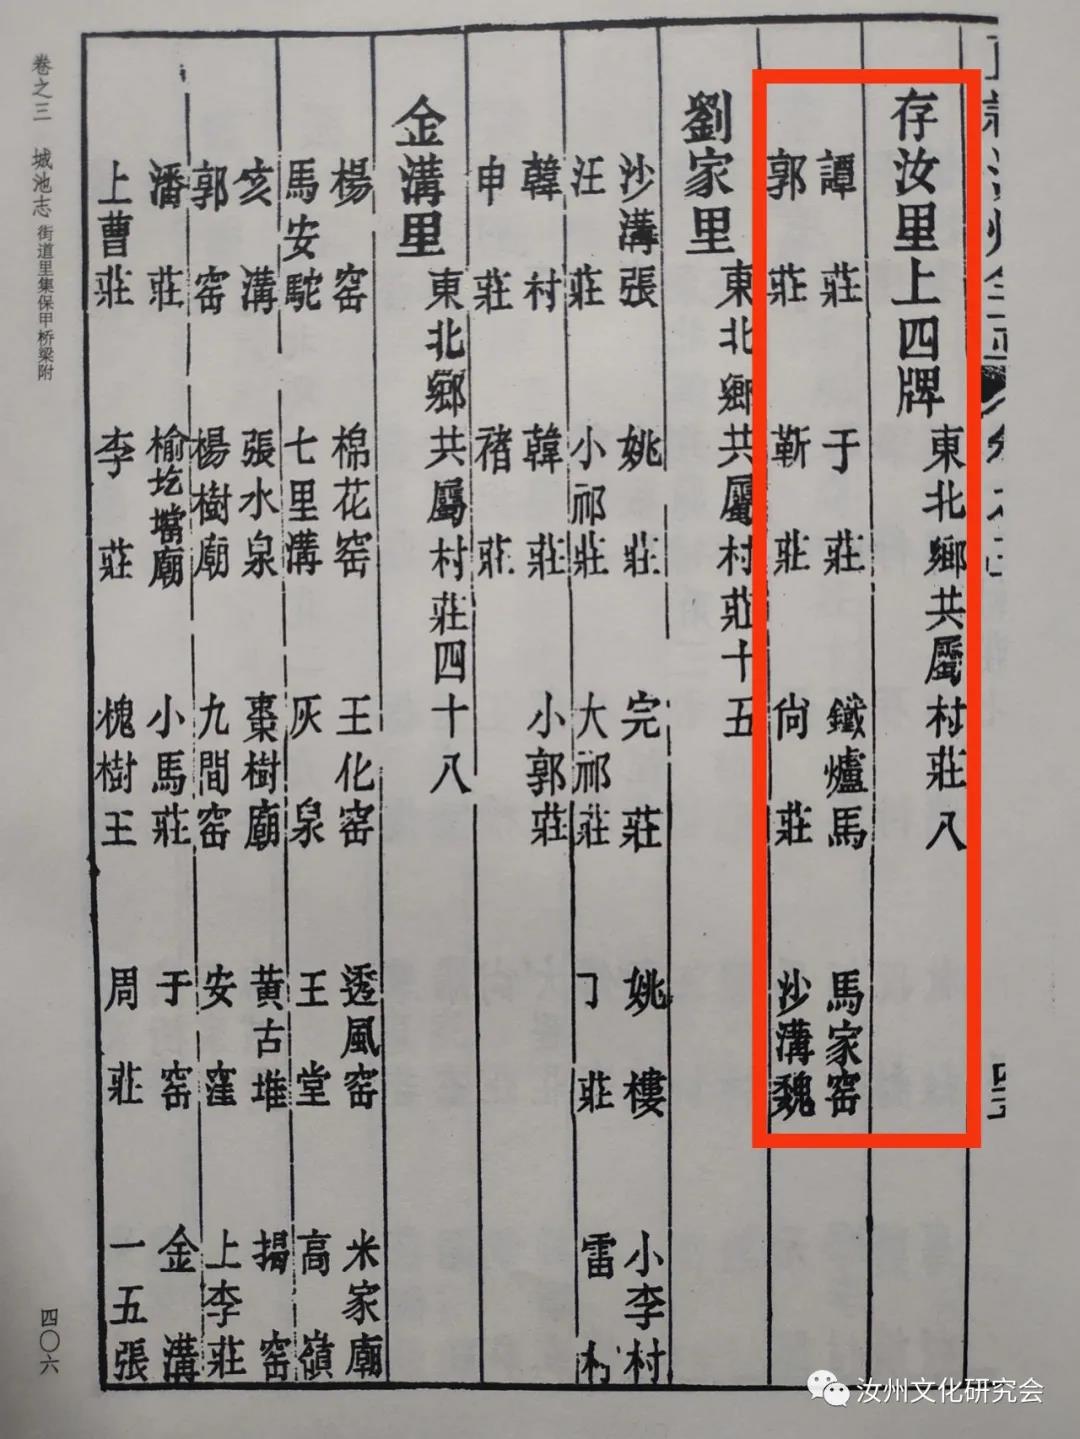 存汝里上四牌 東北鄉共屬村莊八
譚莊 于莊 鐵爐馬 馬家窑
郭莊 靳莊 尙莊 沙溝魏
劉家里 東北鄉共屬村莊十五
沙溝張 姚莊 完莊 姚樓 小李村
汪莊 小祁莊 大祁莊 丁莊 雷村
韓村 韓莊 小郭莊
申莊 褚莊
金溝里 東北鄉共屬村莊四十八
楊窑 棉花窑 王化窑 透風窑 米家廟
馬安駝 七里溝 灰泉 王堂 高嶺
亥溝 張水泉 棗樹廟 黃古堆 揭窑
郭窑 楊樹廟 九間窑 安窪 上李莊
潘莊 榆圪壋廟 小馬莊 于窑 金溝
上曹莊 李莊 槐樹王 周莊 一五張
卷之三 城池志 街道里集保甲桥梁附
四〇六
汝州文化研究会